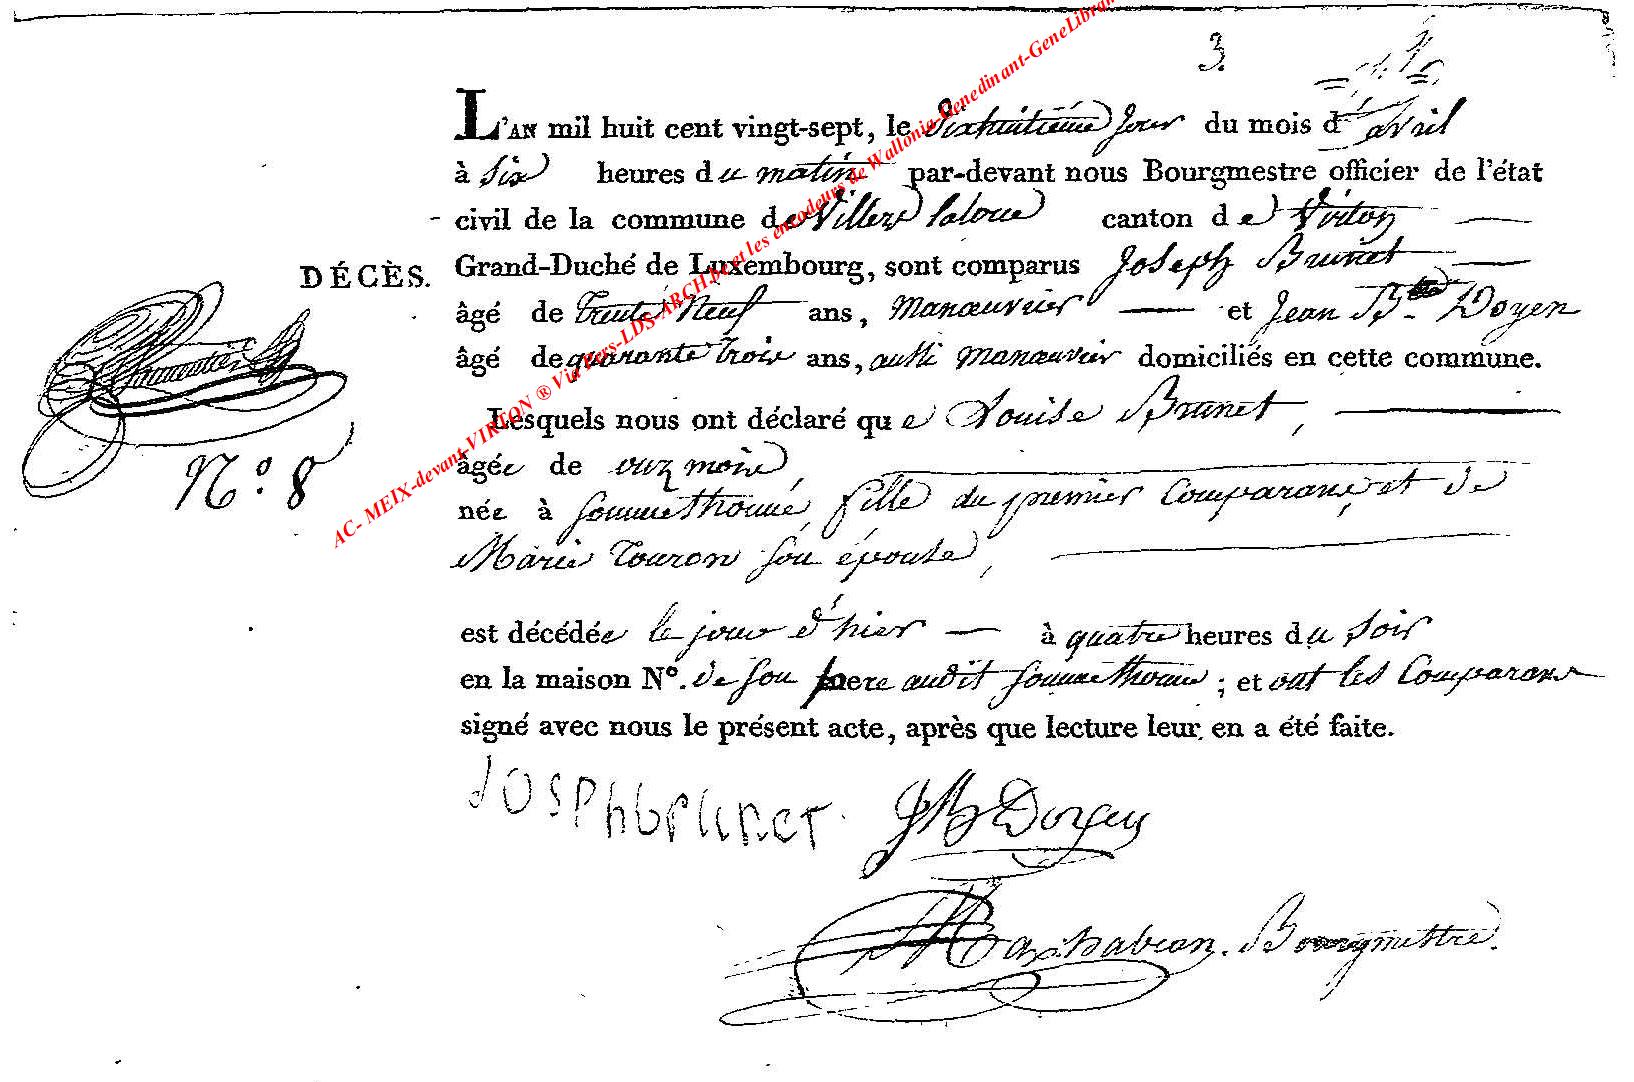 3.
L'AN mil huit cent vingt-sept, le Dixhuitième jour du mois d'avril
à six heures du matin par-devant nous Bourgmestre officier de l'état
civil de la commune de Villers laloue canton de Virton
Grand-Duché de Luxembourg, sont comparus Joseph Brunet
DÉCÈS.
âgé de trente Neuf ans, manœuvrier et Jean Bte Doyen
âgé de quarante trois ans, aussi manœuvrier domiciliés en cette commune.
Lesquels nous ont déclaré que Louise Brunet,
âgée de onze mois,
N.º 8
née à Sommethonne, fille du premier Comparant, et de
Marie Touron son épouse,
est décédée le jour d'hier à quatre heures du soir
en la maison Nº. de son pere audit Sommethonne ; et ont les Comparans
signé avec nous le présent acte, après que lecture leur en a été faite.
Josphbrunet JB Doyen
Bourgmestre.
AC- MEIX-devant-VIRTON ® Via Gers-LDS-ARCH.be et les encodeurs de Wallonia-Genedinant-GeneLibran